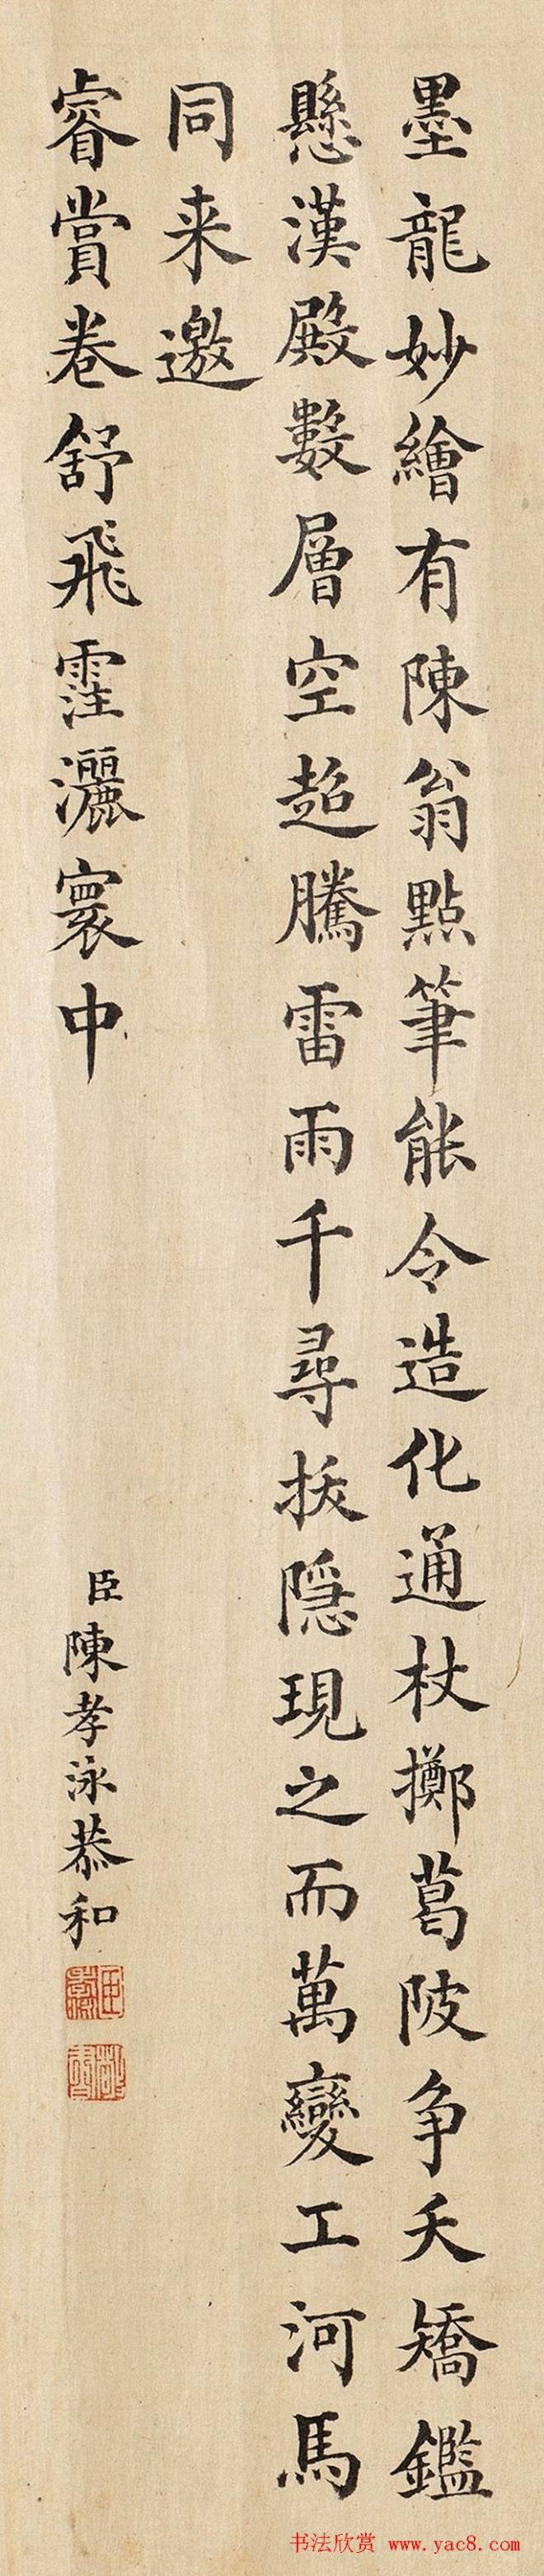 墨龍妙繪有陳翁點筆能令造化通杖擲葛陂争夭矯鑑
懸漢殿數層空超騰雷雨千尋拔隱現之而萬變工河馬
同来邀
睿賞卷舒飛霔灑寰中
臣陳孝泳恭和
书法欣赏 www.yac8.com